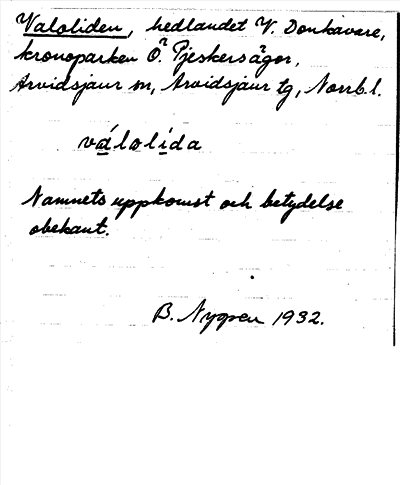 Valoliden, hedlandet V. Donkavare,
kronoparken Ö. Pjeskersågor,
Arvidsjaur sn, Arvidsjaur tg, Norrb. l.
válolída
Namnets uppkomst och betydelse
obekant.
B. Nygren 1932.